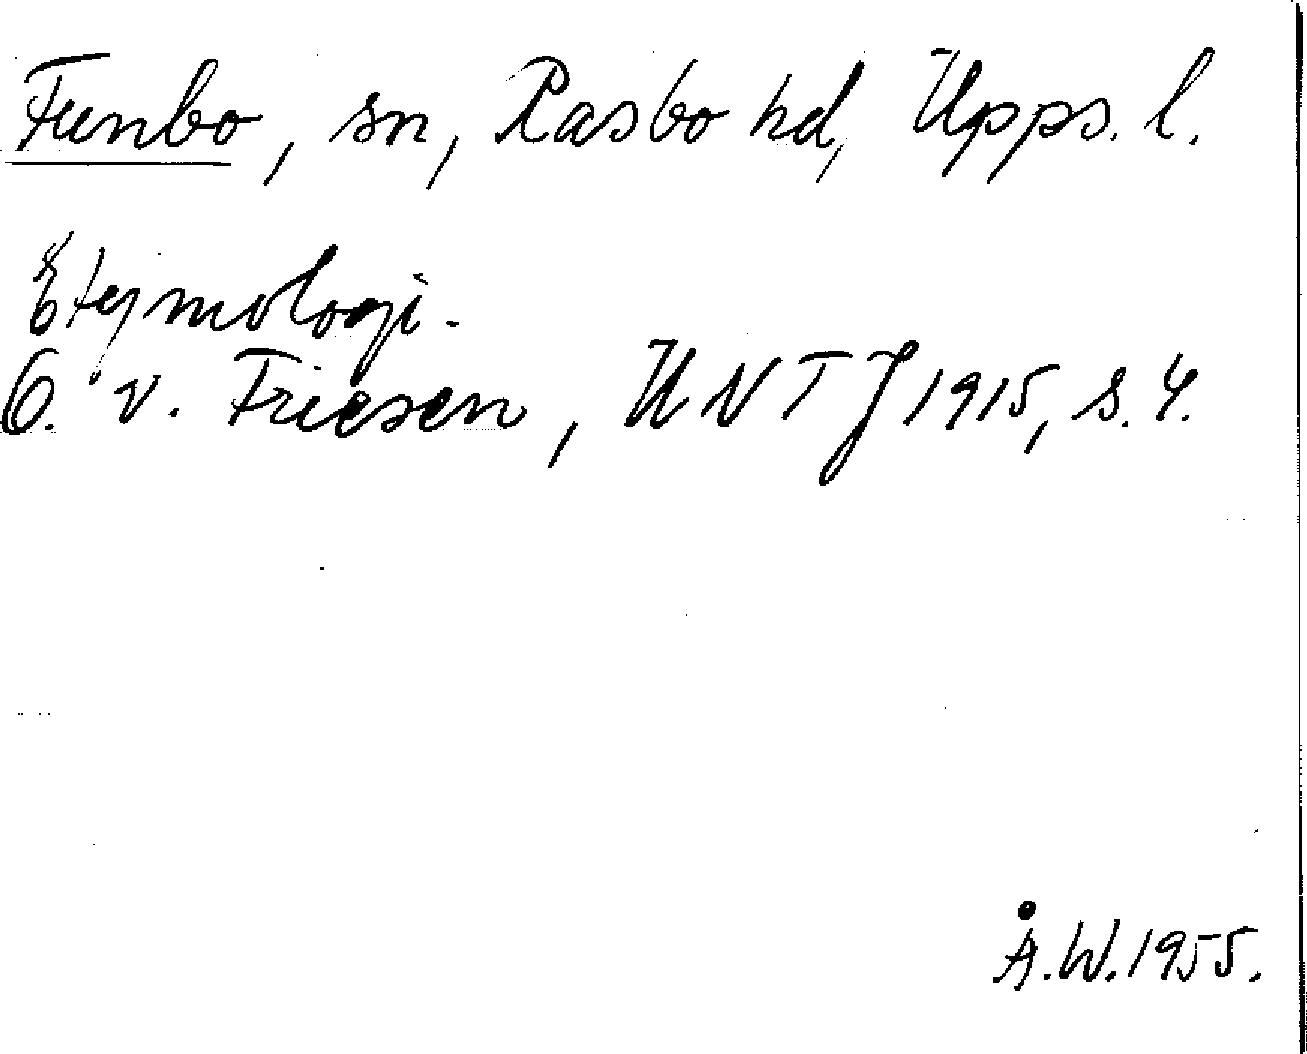 Funbo, sn, Rasbo hd, Upps. l.
Etymologi.
O. v. Friesen, UNTJ 1915, s. 4.
Å.W. 1955.